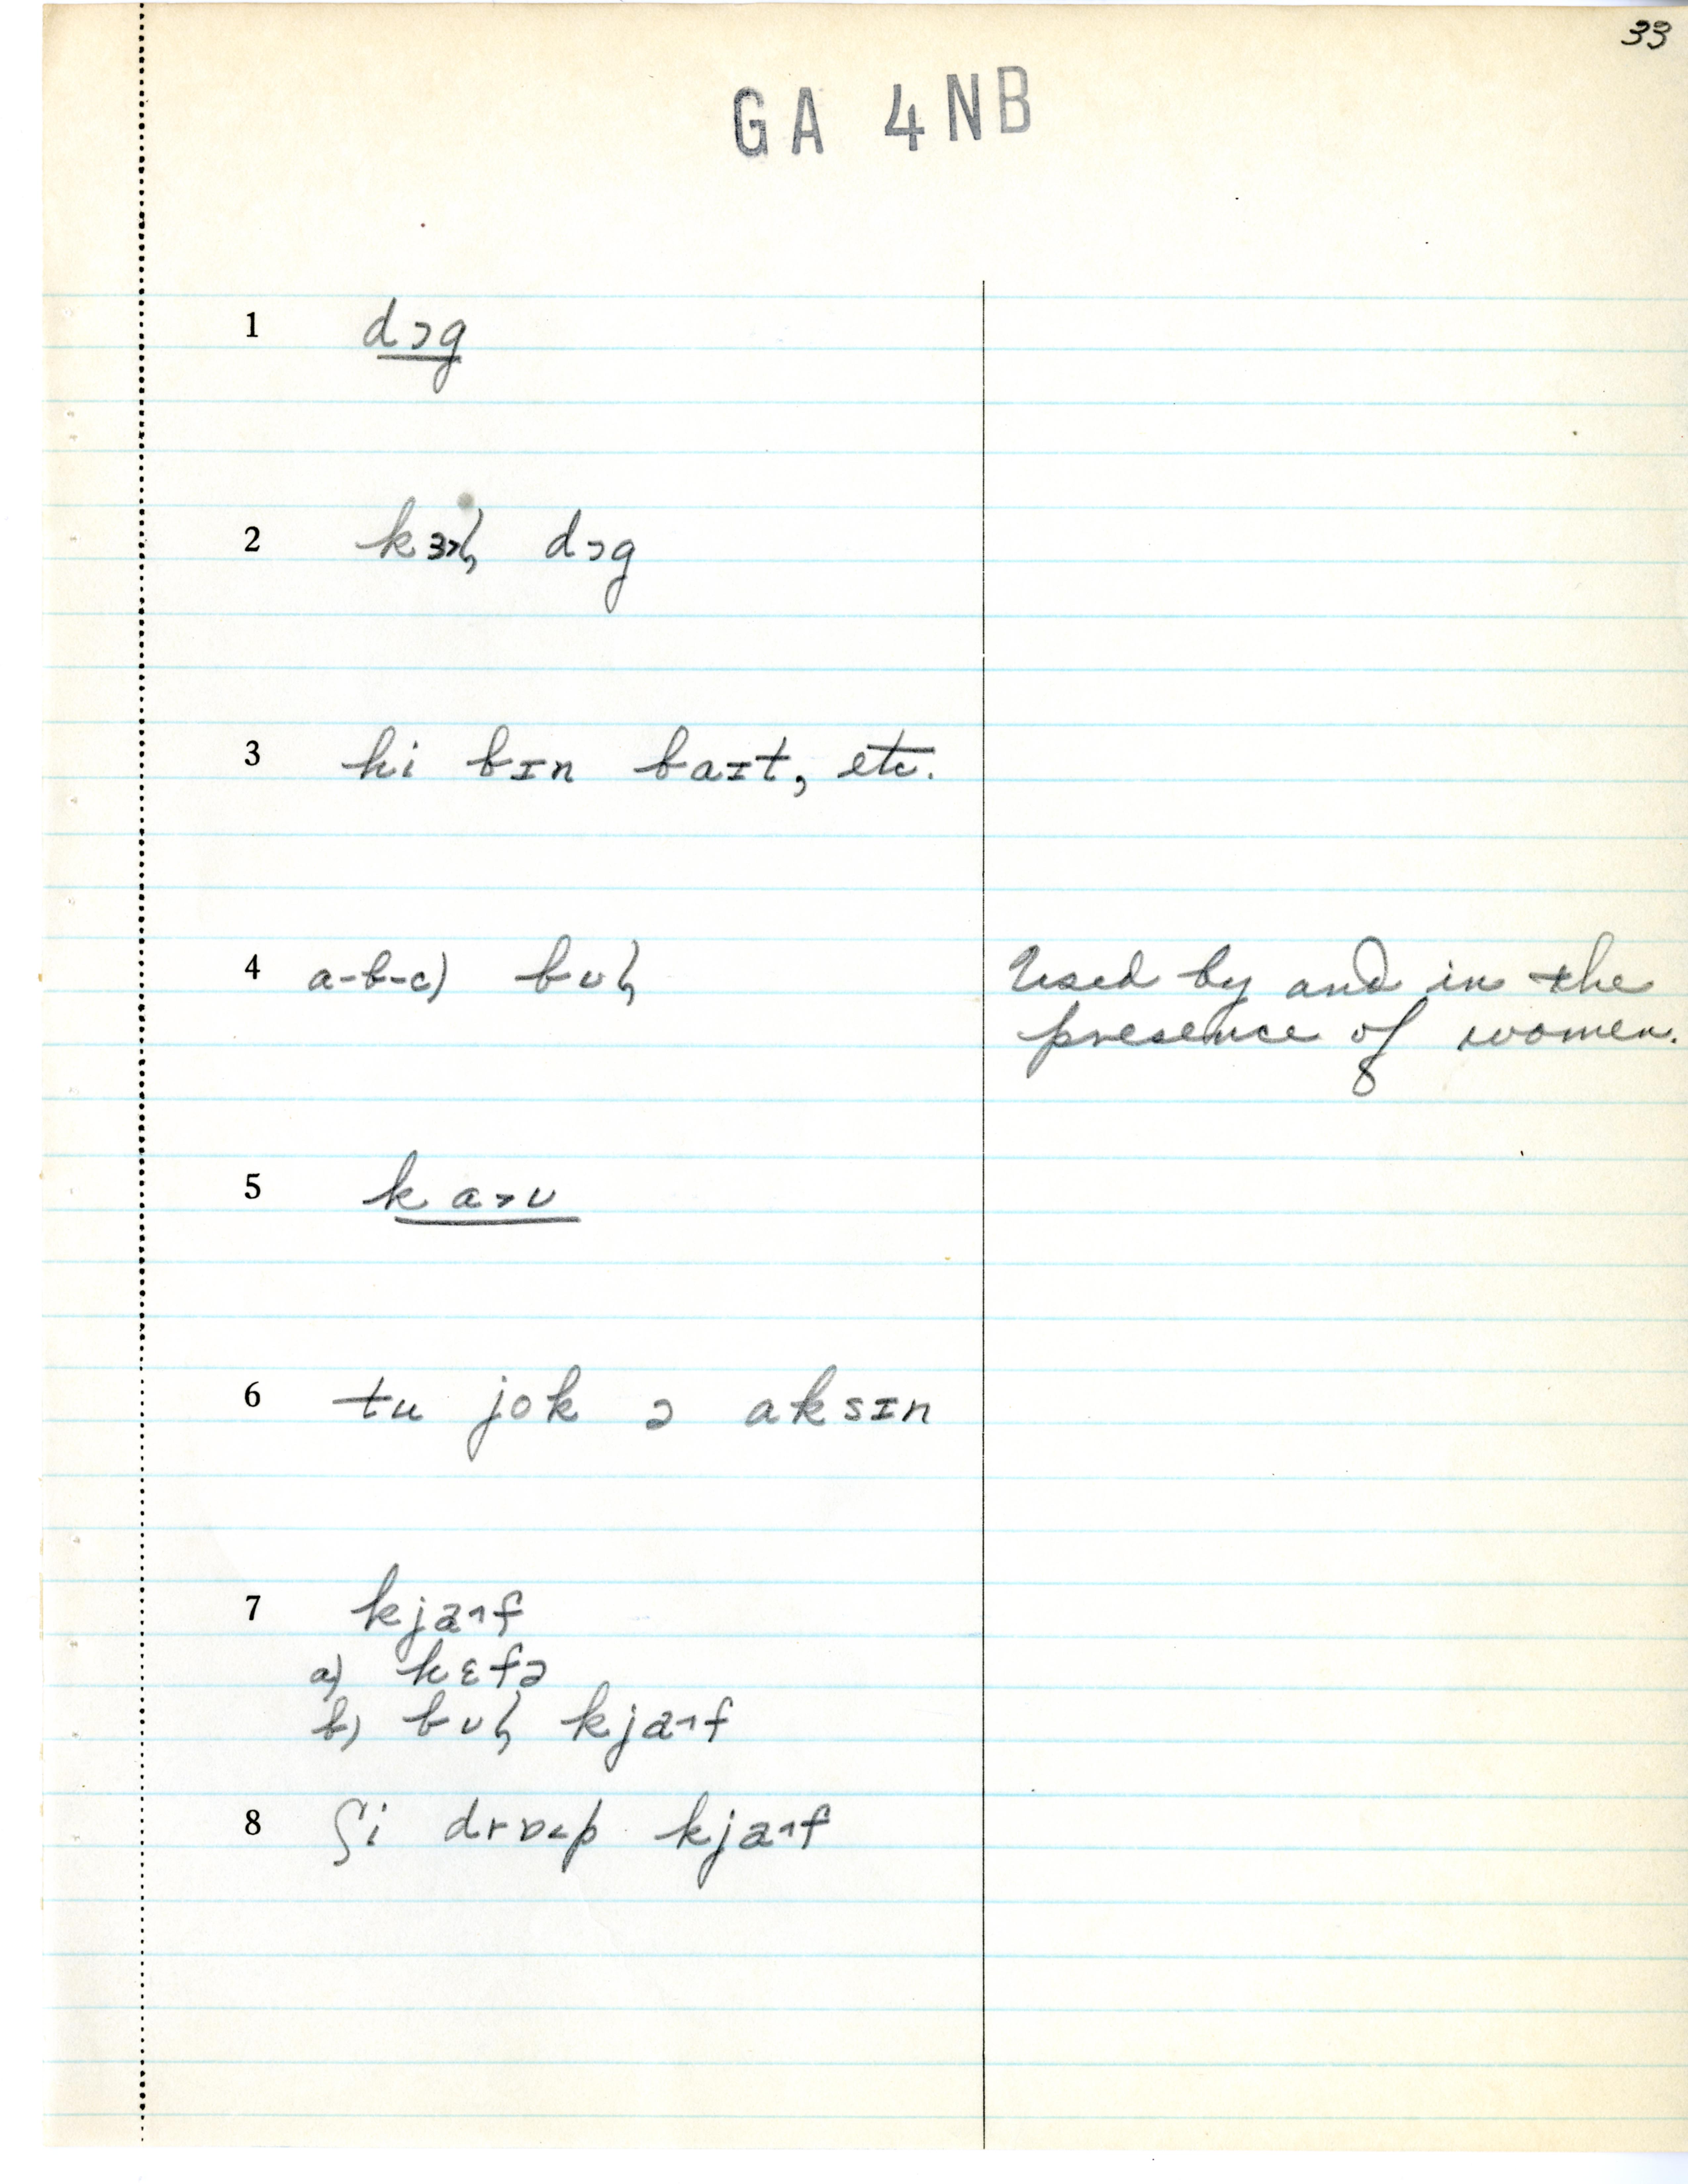 33
GA 4NB
1 dɔg
2 kɜ˃ɫ dɔg
3 hi bɪn baɪt, etc.
4 a-b-c) bʊɫ
Used by and in the
presence of women.
5 ka˃ʊ
6 tu jok ə aksɪn
7 kja˄f
a) hɛfə
b) bʊɫ kja˄f
8 ʃi drɒ˂p kja˄f